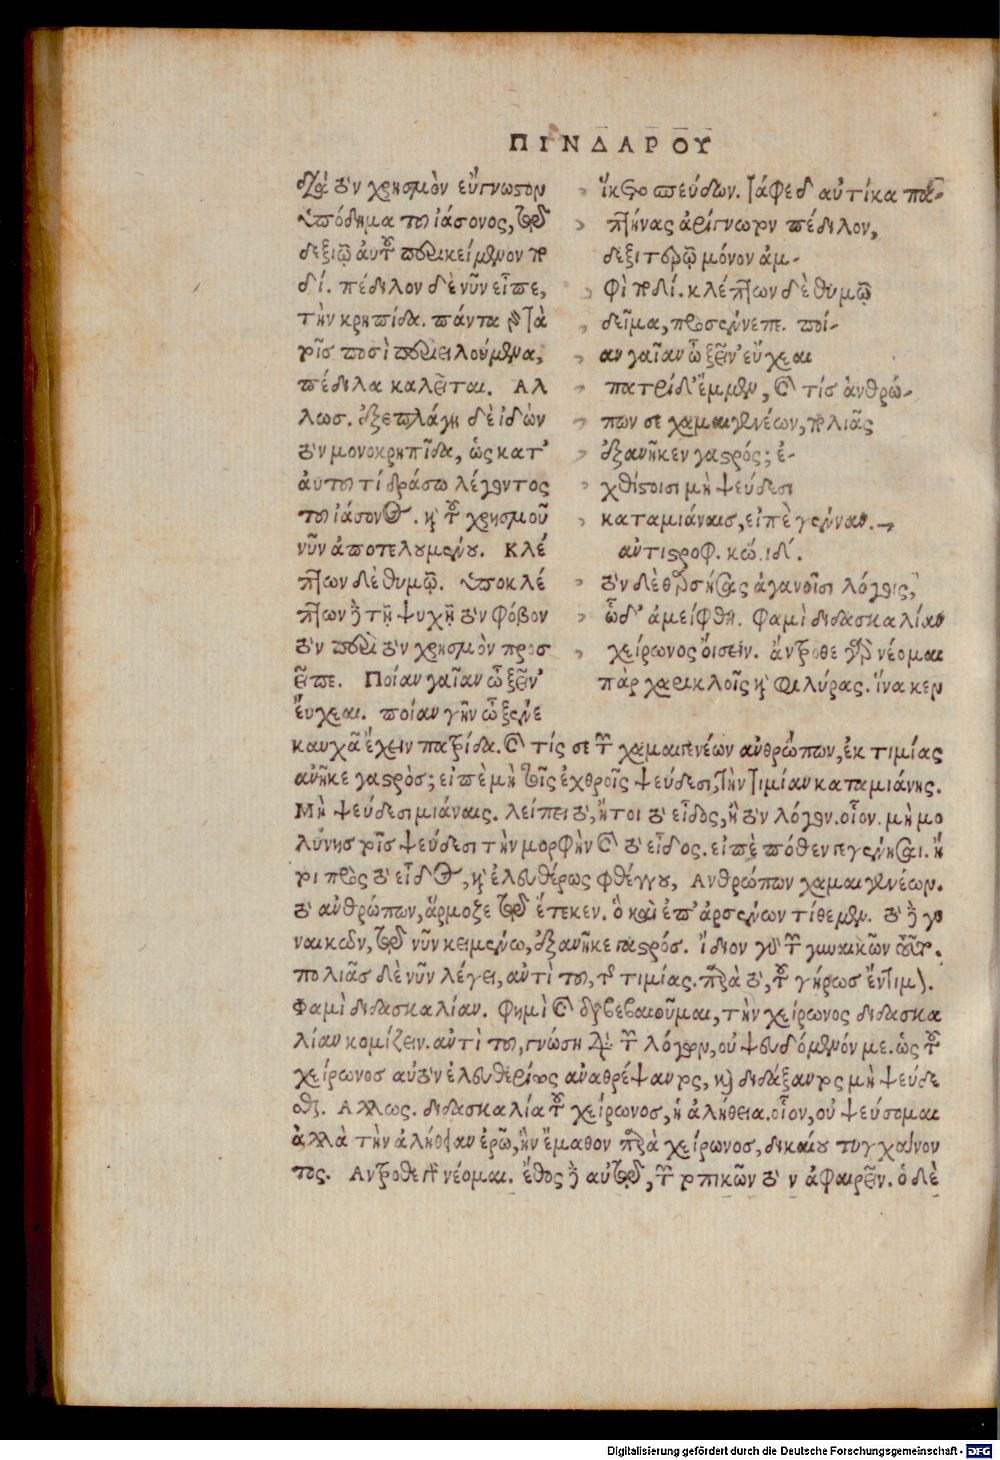 ΠΙΝΔΑΡΟΥ
διὰ τὸν χρησμὸν εὔγνωστον
ὑπόδημα τοῦ ἰάσονος, τὸ
δεξιῷ αὐτοῦ περικείμενον πο
δί. πέδιλον δὲ νῦν εἶπε,
τὴν κρηπίδα. πάντα γὰρ τὰ
τοῖς ποσὶ περιειλούμενα,
πέδιλα καλεῖται. Αλ
λως. ἐξεπλάγη δὲ ἰδὼν
τὸν μονοκρηπῖδα, ὡς κατ'
αὐτοῦ τί δράσω λέγοντος
τοῦ ἰάσονος. καὶ τοῦ χρησμοῦ
νῦν ἀποτελουμένου. Κλέ
πτων δὲ θυμῷ. ὑποκλέ
πτων δὲ τῇ ψυχῇ τὸν φόβον
τὸν περὶ τὸν χρησμὸν προσ
εῖπε. Ποίαν γαῖαν ὦ ξεῖν'
εὔχεαι. ποίαν γῆν ὦ ξένε
ἵκετο σπεύδων. τάφε δ' αὐτίκα πα-
πτήνας ἀρίγνωτον πέδιλον,
δεξιτερῷ μόνον ἀμ-
φὶ ποδί. κλέπτων δὲ θυμῷ
δεῖμα, προσέννεπε. ποί-
αν γαῖαν ὦ ξεῖν' εὔχεαι
πατρίδ' ἔμμεν, καὶ τίς ἀνθρώ-
πων σε χαμαιγενέων, πολιᾶς
ἐξανῆκεν γαστρός; ἐ-
χθίστοισι μὴ ψεύδεσι
καταμιάναις, εἰπὲ γένναν.
ἀντιστροφ. κώ. ιδ'.
τὸν δὲ θαρσήσας ἀγανοῖσι λόγοις,
ὧδ' ἀμείφθη. φαμὶ διδασκαλίαν
χείρωνος οἴσειν. ἄντροθε γὰρ νέομαι
πὰρ χαρικλοῖς καὶ φιλύρας. ἵνα κεν
καυχᾶ ἔχειν πατρίδα. καὶ τίς σε τῶν χαμαιπενέων ἀνθρώπων, ἐκ τιμίας
ἀνῆκε γαστρὸς; εἰπὲ μὴ τοῖς ἐχθροῖς ψεύδεσι, τὴν τιμίαν καταμιάνῃς.
Μὴ ψεύδεσι μιάναις. λείπει τὸ, ἤτοι τὸ εἶδος, ἢ τὸν λόγον. οἷον. μὴ μο
λύνῃσ τοῖς ψεύδεσι τὴν μορφὴν καὶ τὸ εἶδος. εἰπὲ πόθεν γεγέννησαι. ἤ
τοι πρὸς τὸ εἶδος, καὶ ἐλευθέρως φθέγγου, Ανθρώπων χαμαιγενέων.
τὸ ἀνθρώπων, ἅρμοζε τὸ ἔτεκεν. ὃ καὶ ἐπ' ἀρσένων τίθεμεν. τὸ δὲ γυ
ναικῶν, τὸ νῦν κειμένω, ἐξανῆκε γαστρός. ἴδιον γὰρ τῶν γυναικῶν τοῦτο.
πολιᾶς δὲ νῦν λέγει, ἀντὶ τοῦ, τῆς τιμίας. παρὰ τὸ, τοῦ γήρωσ ἔντιμον.
Φαμὶ διδασκαλίαν. φημὶ καὶ διαβεβαιοῦμαι, τὴν χείρωνος διδασκα
λίαν κομίζειν. ἀντὶ τοῦ, γνώσῃ διὰ τῶν λόγων, οὐ ψευδόμενόν με. ὡς τοῦ
χείρωνοσ αὐτὸν ἐλευθερίως ἀναθρέψαντος, καὶ διδάξαντος μὴ ψεύδε
σθαι. Αλλως. διδασκαλία τοῦ χείρωνοσ, ἡ ἀλήθεια. οἷον, οὐ ψεύσομαι
ἀλλὰ τὴν ἀλήθειαν ἐρῶ, ἣν ἔμαθον παρὰ χείρωνοσ, δικαίου τυγχάνον
τος. Αντροθε γὰρ νέομαι. ἔθος δὲ αὐτὸ, τῶν τοπικῶν τὸ ν ἀφαιρεῖν. ὁ δὲ
Digitalisierung gefördert durch die Deutsche Forschungsgemeinschaft - DFG